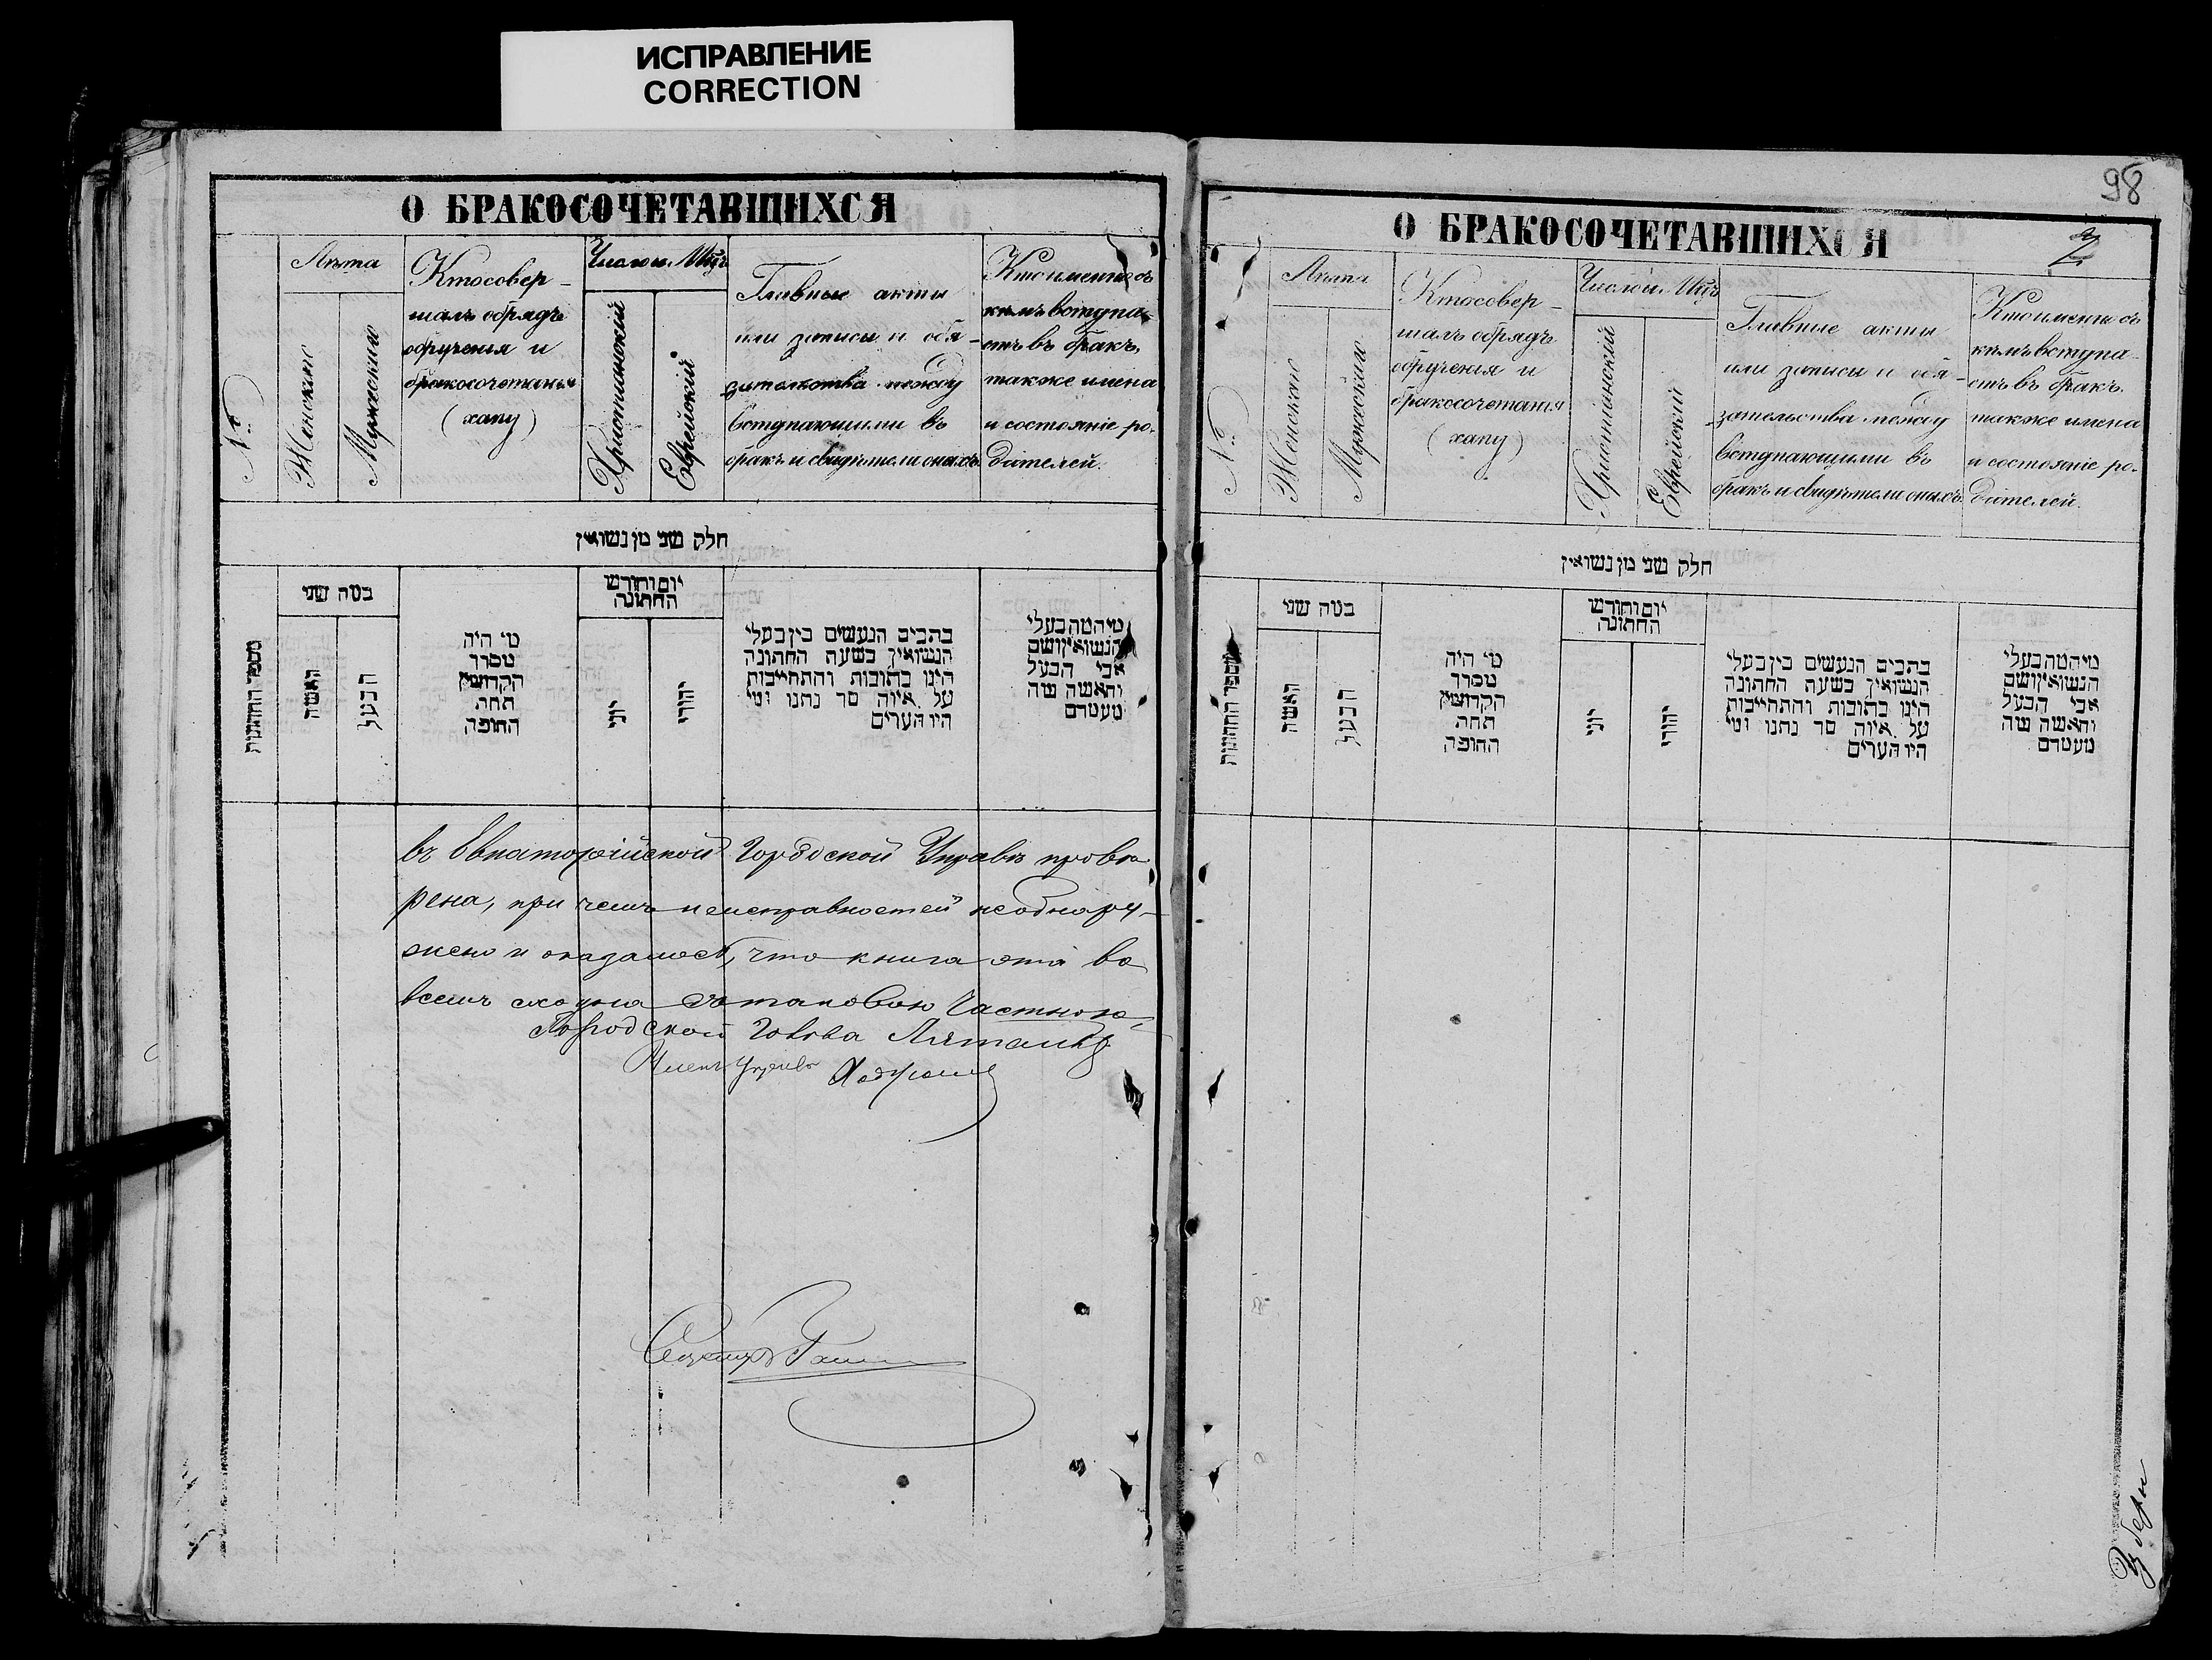 ИСПРАВЛЕНИЕ
CORRECTION
О БРАКОСОЧЕТАВШИХСЯ
№
Лѣта
Женскаго
Мужескаго
Кто совер-
шалъ обрядъ
обрученія и
бракосочетанія
(хапу)
Число и Мѣц
Христіанскій
Еврейскій
Главные акты
или записи и обя-
зательства между
вступающими въ
бракъ и свидѣтели оныхъ
Кто именно съ
кѣмъ вступа-
етъ въ бракъ,
также имена
и состояніе ро-
дителей.
חלק שני מן נשואין
מספר החתונות
במה שני
האשה
הבעל
מי היה
מסדר
הקדושין
תחת
החופה
יום וחודש
החתונה
יוני
יהודי
כתבים הנעשים בין בעלי
הנשואין בשעת החתונה
היינו כתובות והתחייבות
על איזה סך נתנו ומי
היו העדים
מיהמה בעלי
הנשואין ושם
אבי הבעל
והאשה ומה
מעמדם
въ Евпаторійской Городской Управѣ провѣ-
рена, при чемъ неисправностей не обнару-
жено и оказалось, что книга эта во
всемъ сходна съ таковою частною,
Городской Голова
Членъ Управы
98
О БРАКОСОЧЕТАВШИХСЯ
№
Лѣта
Женскаго
Мужескаго
Кто совер-
шалъ обрядъ
обрученія и
бракосочетанія
(хапу)
Число и Мѣц
Христіанскій
Еврейскій
Главные акты
или записи и обя-
зательства между
вступающими въ
бракъ и свидѣтели оныхъ
Кто именно съ
кѣмъ вступа-
етъ въ бракъ,
также имена
и состояніе ро-
дителей.
חלק שני מן נשואין
מספר החתונות
במה שני
האשה
הבעל
מי היה
מסדר
הקדושין
תחת
החופה
יום וחודש
החתונה
יוני
יהודי
כתבים הנעשים בין בעלי
הנשואין בשעת החתונה
היינו כתובות והתחייבות
על איזה סך נתנו ומי
היו העדים
מיהמה בעלי
הנשואין ושם
אבי הבעל
והאשה ומה
מעמדם